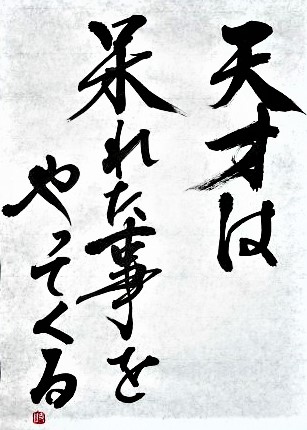 天才は
呆れた事を
やってくる